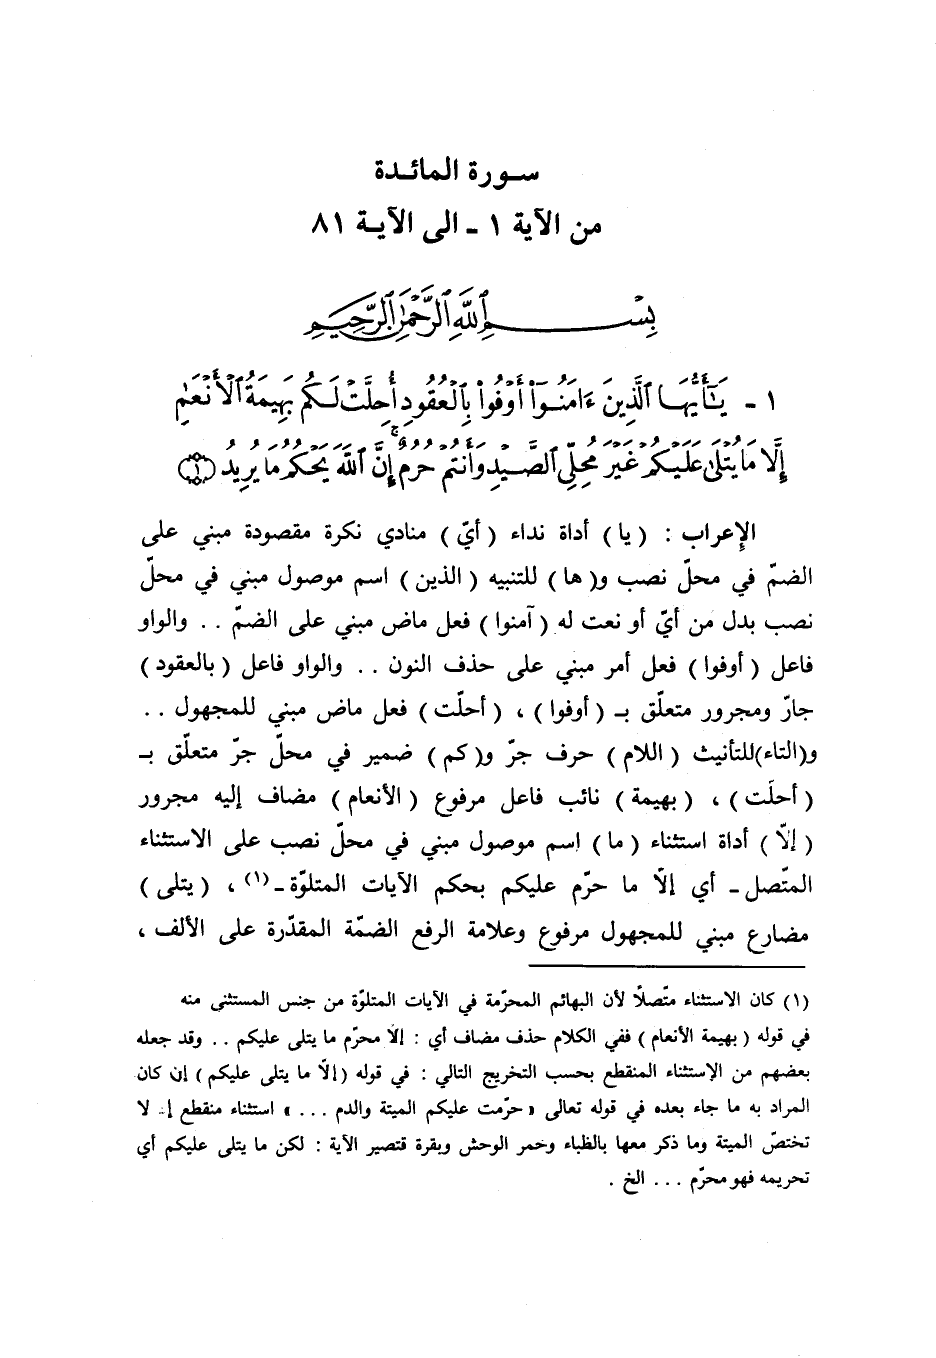 سورة المائدة
من الآية ١ - الى الآية ٨١
بِسْمِ اللَّهِ الرَّحْمَٰنِ الرَّحِيمِ
١ - يَٰٓأَيُّهَا ٱلَّذِينَ ءَامَنُوٓا۟ أَوْفُوا۟ بِٱلْعُقُودِ أُحِلَّتْ لَكُم بَهِيمَةُ ٱلْأَنْعَٰمِ
إِلَّا مَا يُتْلَىٰ عَلَيْكُمْ غَيْرَ مُحِلِّى ٱلصَّيْدِ وَأَنتُمْ حُرُمٌ ۗ إِنَّ ٱللَّهَ يَحْكُمُ مَا يُرِيدُ (١)
الإعراب : ( يا ) أداة نداء ( أيّ ) منادي نكرة مقصودة مبني على
الضمّ في محلّ نصب و( ها ) للتنبيه ( الذين ) اسم موصول مبني في محلّ
نصب بدل من أيّ أو نعت له ( آمنوا ) فعل ماض مبني على الضمّ . . والواو
فاعل ( أوفوا ) فعل أمر مبني على حذف النون . . والواو فاعل ( بالعقود )
جارّ ومجرور متعلّق بـ ( أوفوا ) ، ( أحلّت ) فعل ماض مبني للمجهول . .
و(التاء)للتأنيث ( اللام ) حرف جرّ و( كم ) ضمير في محلّ جرّ متعلّق بـ
( أحلّت ) ، ( بهيمة ) نائب فاعل مرفوع ( الأنعام ) مضاف إليه مجرور
( إلّا ) أداة استثناء ( ما ) اسم موصول مبني في محلّ نصب على الاستثناء
المتّصل - أي إلّا ما حرّم عليكم بحكم الآيات المتلوّة -(١) ، ( يتلى )
مضارع مبني للمجهول مرفوع وعلامة الرفع الضمّة المقدّرة على الألف ،
(١) كان الاستثناء متّصلاً لأن البهائم المحرّمة في الآيات المتلوّة من جنس المستثنى منه
في قوله ( بهيمة الأنعام ) ففي الكلام حذف مضاف أي : إلّا محرّم ما يتلى عليكم . . وقد جعله
بعضهم من الإستثناء المنقطع بحسب التخريج التالي : في قوله ( إلّا ما يتلى عليكم ) إن كان
المراد به ما جاء بعده في قوله تعالى « حرّمت عليكم الميتة والدم . . . » استثناء منقطع إذ لا
تختصّ الميتة وما ذكر معها بالظباء وحمر الوحش وبقرة فتصير الآية : لكن ما يتلى عليكم أي
تحريمه فهو محرّم . . . الخ .